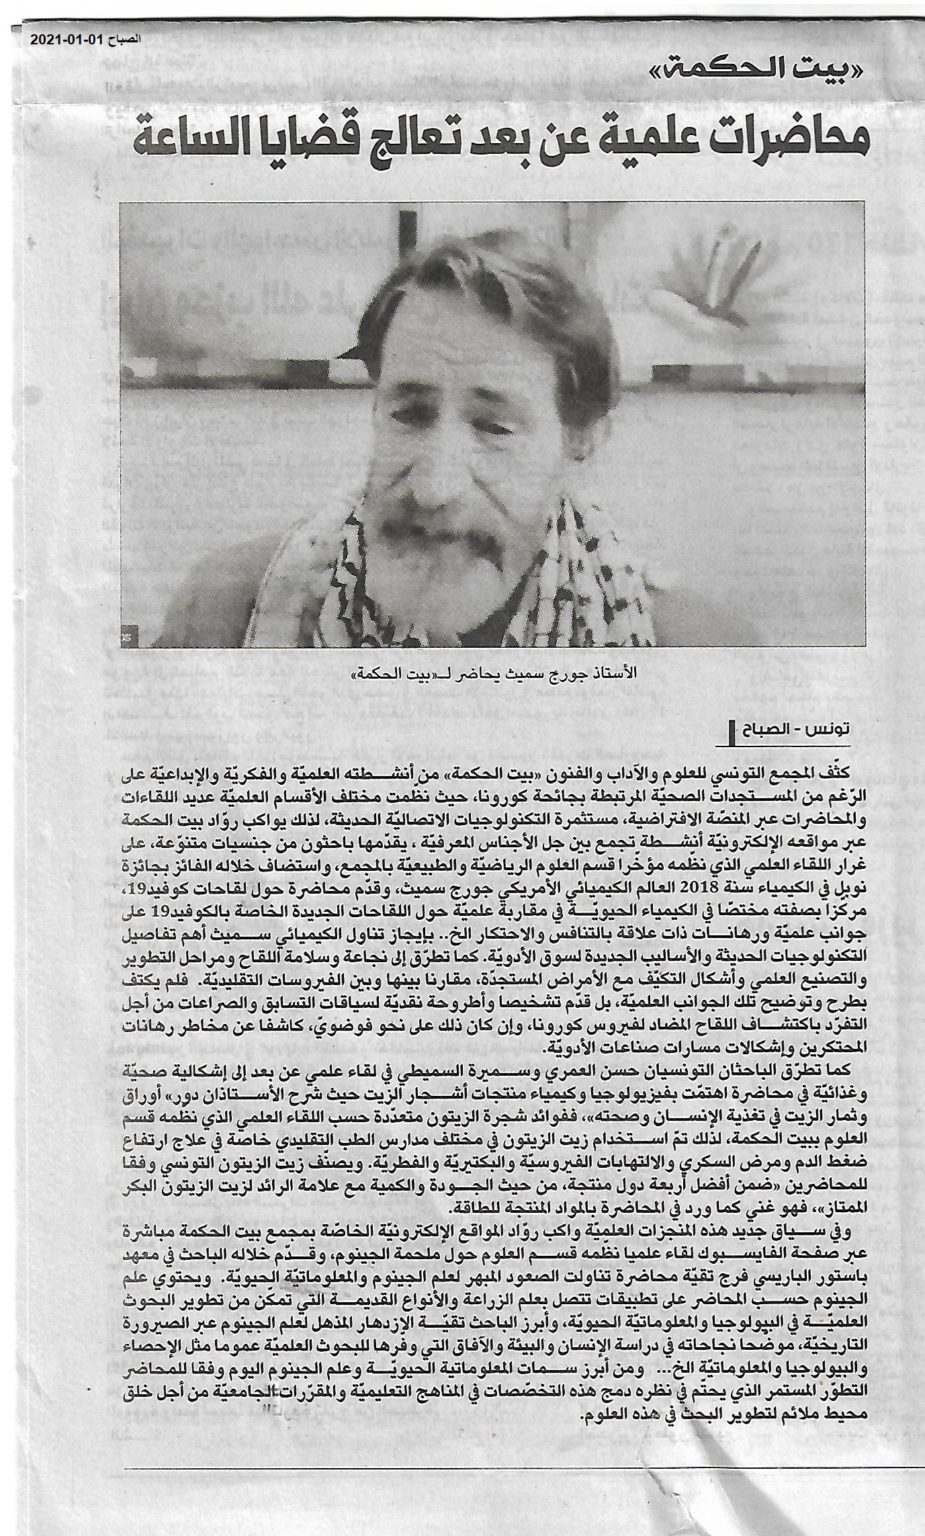 الصباح 01-01-2021
«بيت الحكمة»
محاضرات علمية عن بعد تعالج قضايا الساعة
الأستاذ جورج سميث يحاضر لـ«بيت الحكمة»
تونس - الصباح
كثّف المجمع التونسي للعلوم والآداب والفنون «بيت الحكمة» من أنشـطته العلميّة والفكريّة والإبداعيّة على
الرّغم من المســتجدات الصحيّة المرتبطة بجائحة كورونا، حيث نظّمت مختلف الأقسام العلميّة عديد اللقاءات
والمحاضرات عبر المنصّة الافتراضية، مستثمرة التكنولوجيات الاتصاليّة الحديثة، لذلك يواكب روّاد بيت الحكمة
عبر مواقعه الإلكترونيّة أنشـطة تجمع بين جل الأجناس المعرفيّة ، يقدّمها باحثون من جنسيات متنوّعة، على
غرار اللقاء العلمي الذي نظمه مؤخّرا قسم العلوم الرياضيّة والطبيعيّة بالمجمع، واستضاف خلاله الفائز بجائزة
نوبل في الكيمياء سنة 2018 العالم الكيميائي الأمريكي جورج سميث، وقدّم محاضرة حول لقاحات كوفيد19،
مركّزا بصفته مختصّا في الكيمياء الحيويّــة في مقاربة علميّة حول اللقاحات الجديدة الخاصة بالكوفيد19 على
جوانب علميّة ورهـانـات ذات علاقة بالتنافس والاحتكار الخ.. بإيجاز تناول الكيميائي ســميث أهم تفاصيل
التكنولوجيات الحديثة والأساليب الجديدة لسوق الأدويّة. كما تطرّق إلى نجاعة وسلامة اللقاح ومراحل التطوير
والتصنيع العلمي وأشكال التكيّف مع الأمراض المستجدّة، مقارنا بينها وبين الفيروسات التقليديّة. فلم يكتف
بطرح وتوضيح تلك الجوانب العلميّة، بل قدّم تشخيصا وأطروحة نقديّة لسياقات التسابق والصراعات من أجل
التفرّد باكتشــاف اللقاح المضاد لفيروس كورونا، وإن كان ذلك على نحو فوضويّ، كاشفا عن مخاطر رهانات
المحتكرين وإشكالات مسارات صناعات الأدويّة.
كما تطرّق الباحثان التونسيان حسن العمري وســميرة السميطي في لقاء علمي عن بعد إلى إشكالية صحيّة
وغذائيّة في محاضرة اهتمّت بفيزيولوجيا وكيمياء منتجات أشـجار الزيت حيث شرح الأسـتاذان دور» أوراق
وثمار الزيت في تغذية الإنســان وصحته»، ففوائد شجرة الزيتون متعدّدة حسب اللقاء العلمي الذي نظّمه قسم
العلوم ببيت الحكمة، لذلك تمّ اســتخدام زيت الزيتون في مختلف مدارس الطب التقليدي خاصة في علاج ارتفاع
ضغط الدم ومرض السكري والالتهابات الفيروسيّة والبكتيريّة والفطريّة. ويصنّف زيت الزيتون التونسي وفقا
للمحاضرين «ضمن أفضل أربعة دول منتجة، من حيث الجــودة والكمية مع علامة الرائد لزيت الزيتون البكر
الممتاز»، فهو غني كما ورد في المحاضرة بالمواد المنتجة للطاقة.
وفي سـياق جديد هذه المنجزات العلميّة واكب روّاد المواقع الإلكترونيّة الخاصّة بمجمع بيت الحكمة مباشرة
عبر صفحة الفايسـبوك لقاء علميا نظمه قســم العلوم حول ملحمة الجينوم، وقــدّم خلاله الباحث في معهد
باستور الباريسي فرج تقيّة محاضرة تناولت الصعود المبهر لعلم الجينوم والمعلوماتيّة الحيويّة. ويحتوي علم
الجينوم حسـب المحاضر على تطبيقات تتصل بعلم الزراعة والأنواع القديمــة التي تمكّن من تطوير البحوث
العلميّــة في البيولوجيا والمعلوماتيّة الحيويّة، وأبرز الباحث تقيّـة الإزدهار المذهل لعلم الجينوم عبر الصيرورة
التاريخيّة، موضّحا نجاحاته في دراسة الإنسان والبيئة والآفاق التي وفرها للبحوث العلميّة عموما مثل الإحصاء
والبيولوجيا والمعلوماتيّة الخ... ومن أبرز سـمات المعلوماتية الحيويّــة وعلم الجينوم اليوم وفقا للمحاضر
التطوّر المستمر الذي يحتّم في نظره دمج هذه التخصّصات في المناهج التعليميّة والمقرّرات الجامعيّة من أجل خلق
محيط ملائم لتطوير البحث في هذه العلوم.